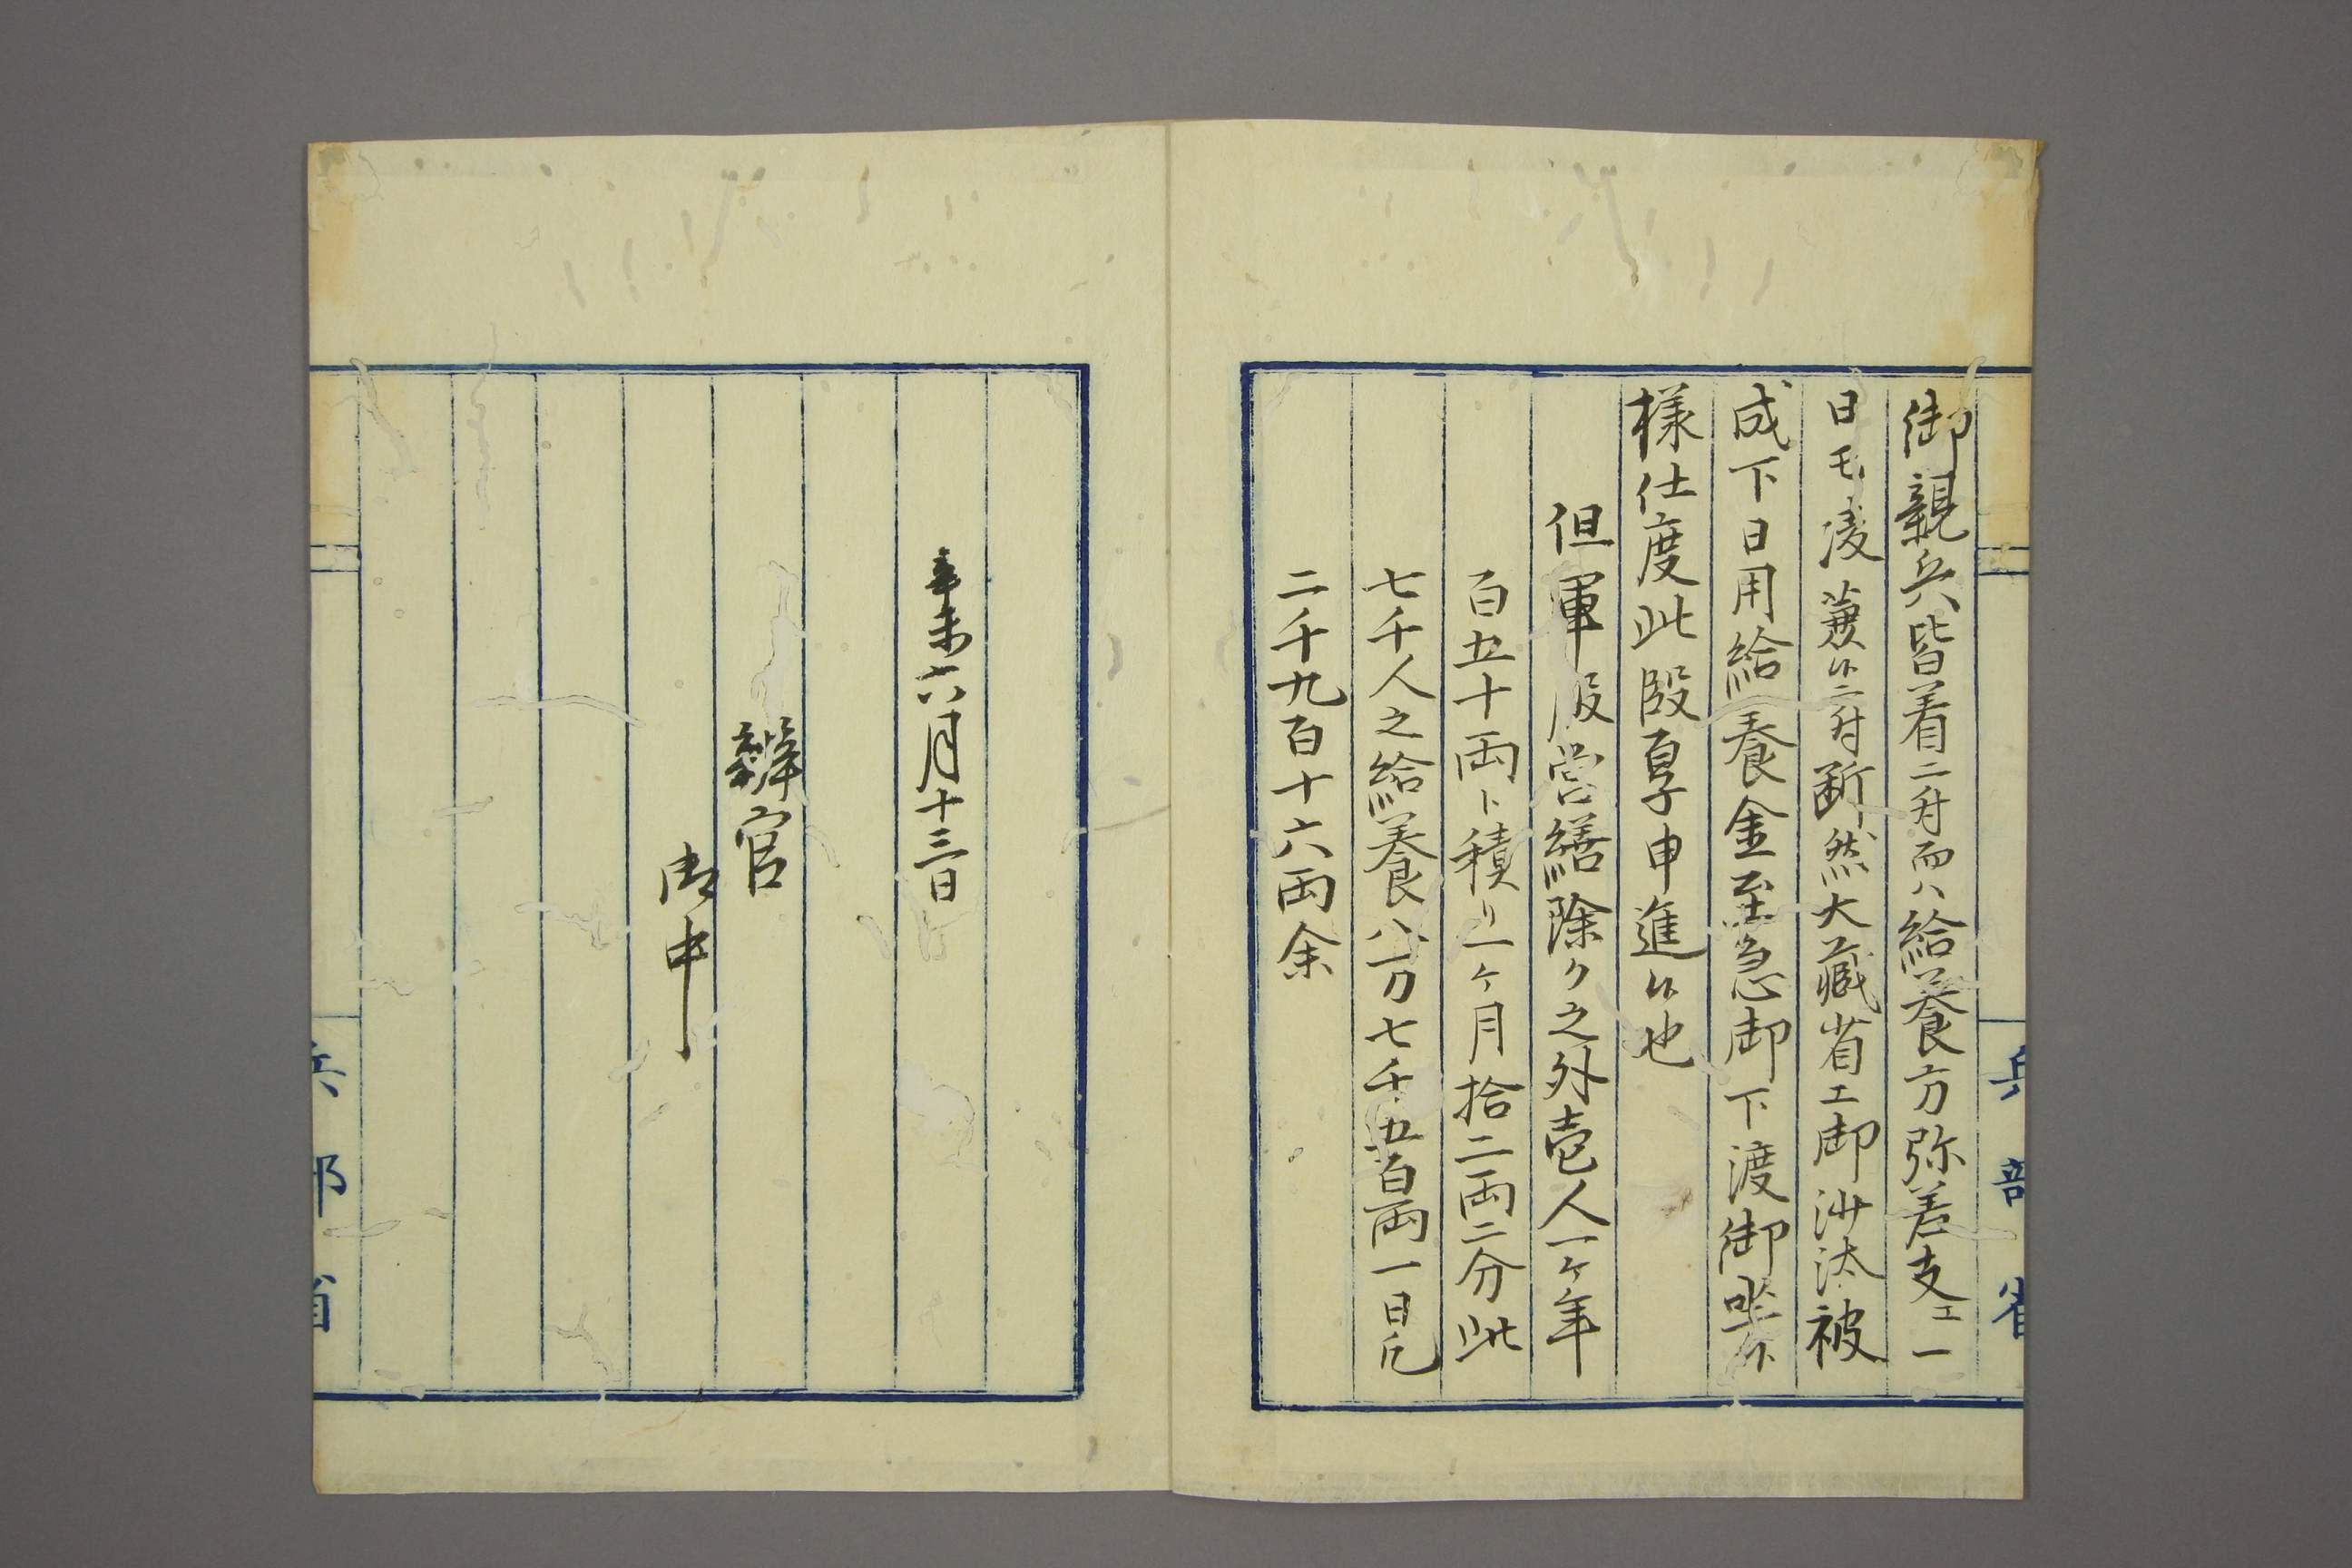 兵部省
御親兵皆着ニ付而ハ給養方弥差支エ一
日モ凌兼候ニ付断然大蔵省エ御沙汰被
成下日用給養金至急御下渡御坐候
様仕度此段厚申進候也
但軍服営繕除ク之外壱人一ケ年
百五十両ト積リ一ケ月拾二両二分此
七千人之給養八万七千五百両一日凡
二千九百十六両余
辛未六月十三日
辨官
御中
兵部省